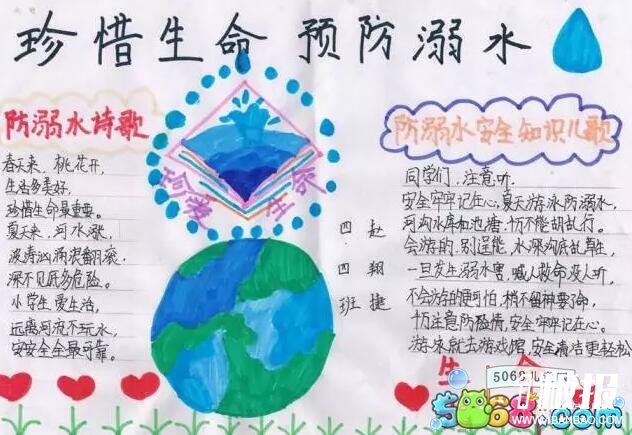 珍惜生命 预防溺水
防溺水诗歌
春天来,桃花开,
生活多美好,
珍惜生命最重要。
夏天来,河水涨,
波涛汹涌浪翻滚,
深不见底多危险。
小学生爱生活,
远离河流不玩水,
安安全全最可靠。
珍爱生命
四四班
赵翔捷
防溺水安全知识儿歌
同学们,注意听,
安全牢牢记在心,夏天游泳防溺水,
河沟水库和池塘,千万不能胡乱行。
会游的,别逞能,水深沟底乱草生,
一旦发生溺水害,喊人救命没人听,
不会游的更怕,稍不留神要了命,
千万注意防险情,安全牢牢记在心。
游泳就去游戏馆,安全清洁更轻松
生命
5068儿
5068.com
板报
WWW.BANBAO.COM